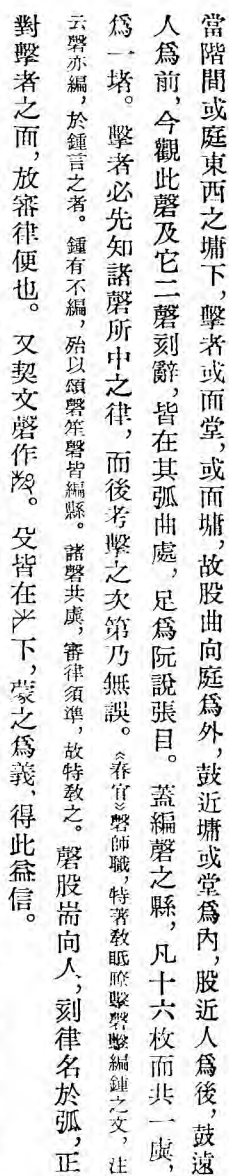 當階間或庭東西之墉下，擊者或面堂，或面墉，故股曲向庭爲外，鼓近墉或堂爲內，股近人爲後，鼓遠
人爲前，今觀此磬及它二磬刻辭，皆在其弧曲處，足爲阮說張目。蓋編磬之縣，凡十六枚而共一虡，
爲一堵。擊者必先知諸磬所中之律，而後考擊之次第乃無誤。《春官》磬師職，特著敎眡瞭擊磬擊編鍾之文，注
云磬亦編，於鍾言之者。鍾有不編，殆以頌磬笙磬皆編縣。諸磬共虡，審律須準，故特敎之。磬股耑向人，刻律名於弧，正
對擊者之面，放審律便也。又契文磬作。殳皆在下，蒙之爲義，得此益信。